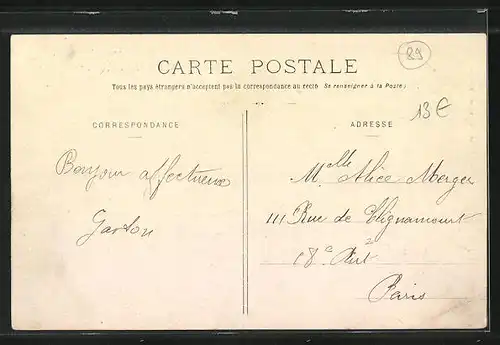 89
CARTE POSTALE
Tous les pays étrangers n'acceptent pas la correspondance au recto (Se renseigner à la Poste)
13€
CORRESPONDANCE
ADRESSE
Bonjour affectueux
Gaston
Mlle Alice Merger
111 Rue de Clignancourt
18e Arrt
Paris